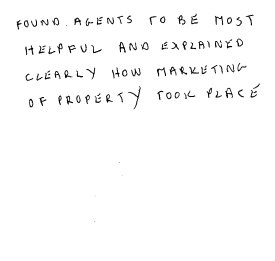 FOUND AGENTS TO BE MOST
HELPFUL AND EXPLAINED
CLEARLY HOW MARKETING
OF PROPERTY TOOK PLACE